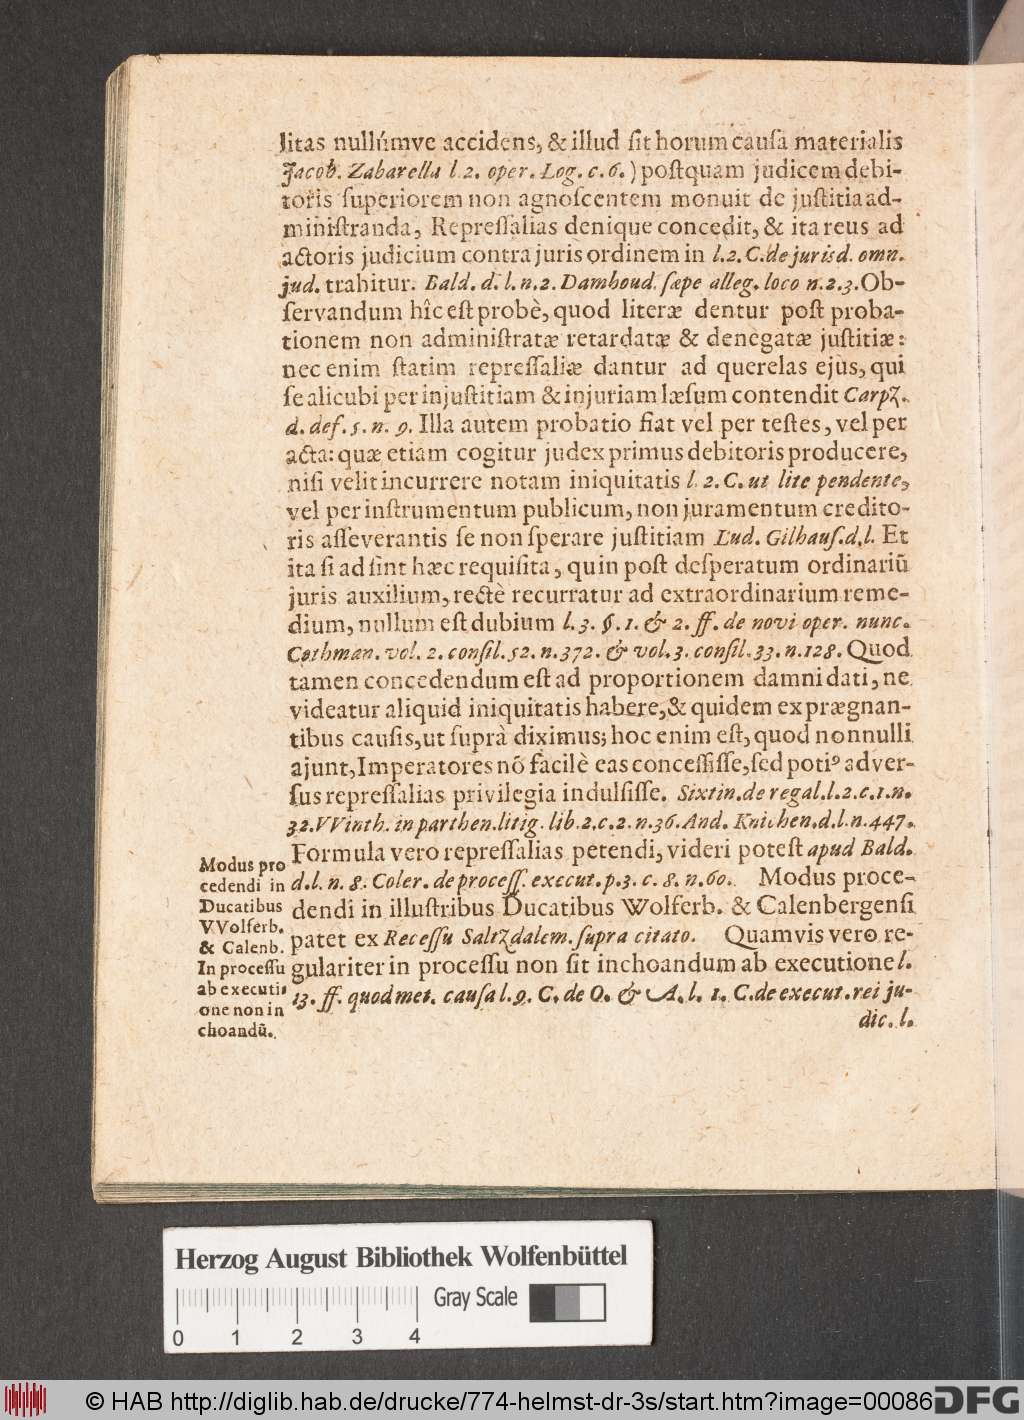 litas nullúmve accidens, & illud sit horum causa materialis
Jacob. Zabarella l. 2. oper. Log. c. 6.) postquam judicem debi-
toris superiorem non agnoscentem monuit de justitia ad-
ministranda, Repressalias denique concedit, & ita reus ad
actoris judicium contra juris ordinem in l. 2. C. de jurisd. omn.
jud. trahitur. Bald. d. l. n. 2. Damhoud. sæpe alleg. loco n. 2. 3. Ob-
servandum hîc est probè, quod literæ dentur post proba-
tionem non administratæ retardatæ & denegatæ justitiæ:
nec enim statim repressaliæ dantur ad querelas ejus, qui
se alicubi per injustitiam & injuriam læsum contendit Carpz.
d. def. 5. n. 9. Illa autem probatio fiat vel per testes, vel per
acta: quæ etiam cogitur judex primus debitoris producere,
nisi velit incurrere notam iniquitatis l. 2. C. ut lite pendente,
vel per instrumentum publicum, non juramentum credito-
ris asseverantis se non sperare justitiam Lud. Gilhaus. d. l. Et
ita si ad sint hæc requisita, quin post desperatum ordinariū
juris auxilium, rectè recurratur ad extraordinarium reme-
dium, nullum est dubium l. 3. §. 1. & 2. ff. de novi oper. nunc.
Cothman. vol. 2. consil. 52. n. 372. & vol. 3. consil. 33. n. 128. Quod
tamen concedendum est ad proportionem damni dati, ne
videatur aliquid iniquitatis habere, & quidem ex prægnan-
tibus causis, ut suprà diximus; hoc enim est, quod nonnulli
ajunt, Imperatores nō facilè eas concessisse, sed potiꝰ adver-
sus repressalias privilegia indulsisse. Sixtin. de regal. l. 2. c. 1. n.
32. VVinth. in parthen. litig. lib. 2. c. 2. n. 36. And. Knichen. d. l. n. 447.
Formula vero repressalias petendi, videri potest apud Bald.
d. l. n. 8. Coler. de process. execut. p. 3. c. 8. n. 60. Modus proce-
dendi in illustribus Ducatibus Wolferb. & Calenbergensi
patet ex Recessu Saltzdalem. supra citato. Quamvis vero re-
gulariter in processu non sit inchoandum ab executione l.
13. ff. quod met. causa l. 9. C. de O. & A. l. 1. C. de execut. rei ju-
dic. l.
Modus pro
cedendi in
Ducatibus
VVolferb.
& Calenb.
In processu
ab executi-
one non in
choandū.
Herzog August Bibliothek Wolfenbüttel
Gray Scale
0 1 2 3 4
© HAB http://diglib.hab.de/drucke/774-helmst-dr-3s/start.htm?image=00086
DFG